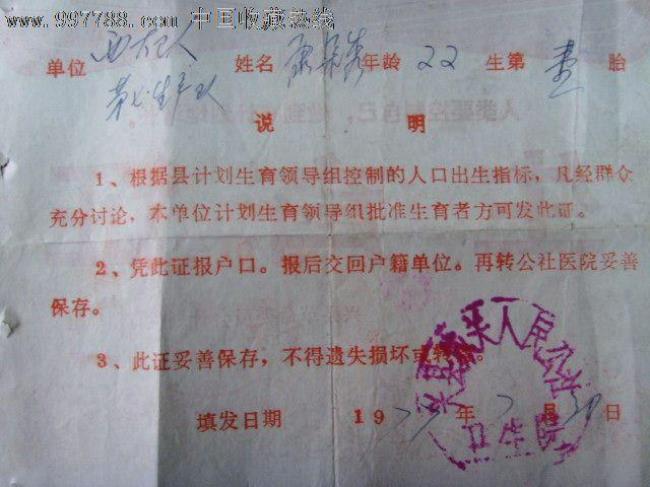 www.997788.com 中国收藏热线
单位 姓名 年龄 22 生第 壹 胎
第七生产队
说 明
1、根据县计划生育领导组控制的人口出生指标，凡经群众
充分讨论，本单位计划生育领导组批准生育者方可发此证。
2、凭此证报户口。报后交回户籍单位。再转公社医院妥善
保存。
3、此证妥善保存，不得遗失损坏或转借。
填发日期 19 年 月 日
人民公社
卫生院